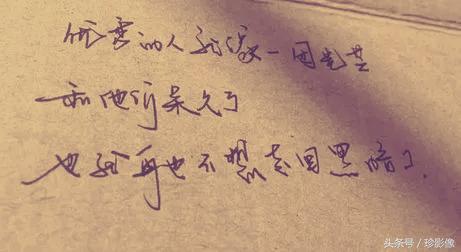 优秀的人就像一团光芒
和他们呆久了
也就再也不想走回黑暗了.
头条号/珍影像